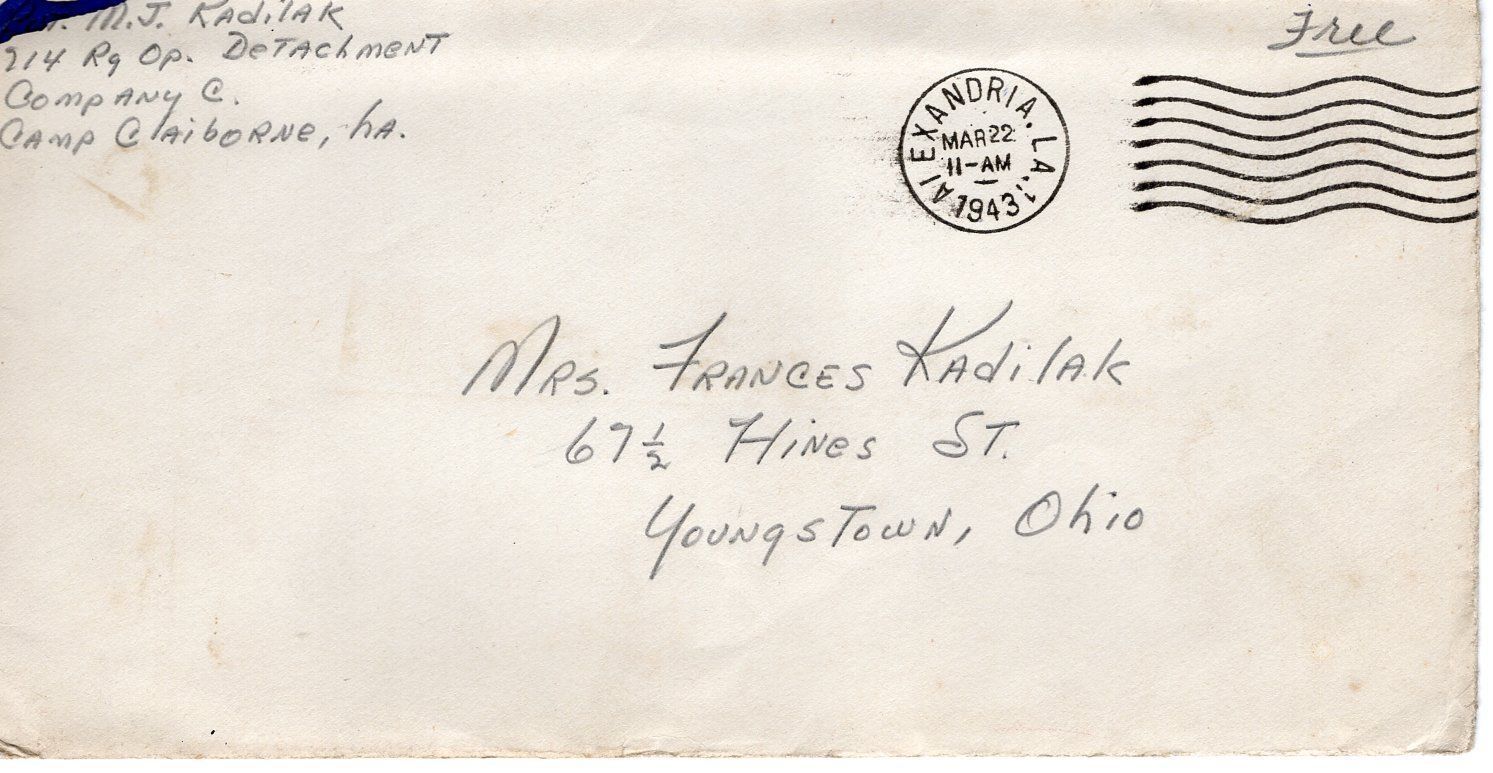 M.J. Kadilak
714 Ry Op. Detachment
Company C.
Camp Claiborne, La.
Free
ALEXANDRIA, LA.
MAR 22
11-AM
1943
Mrs. Frances Kadilak
67½ Hines St.
Youngstown, Ohio